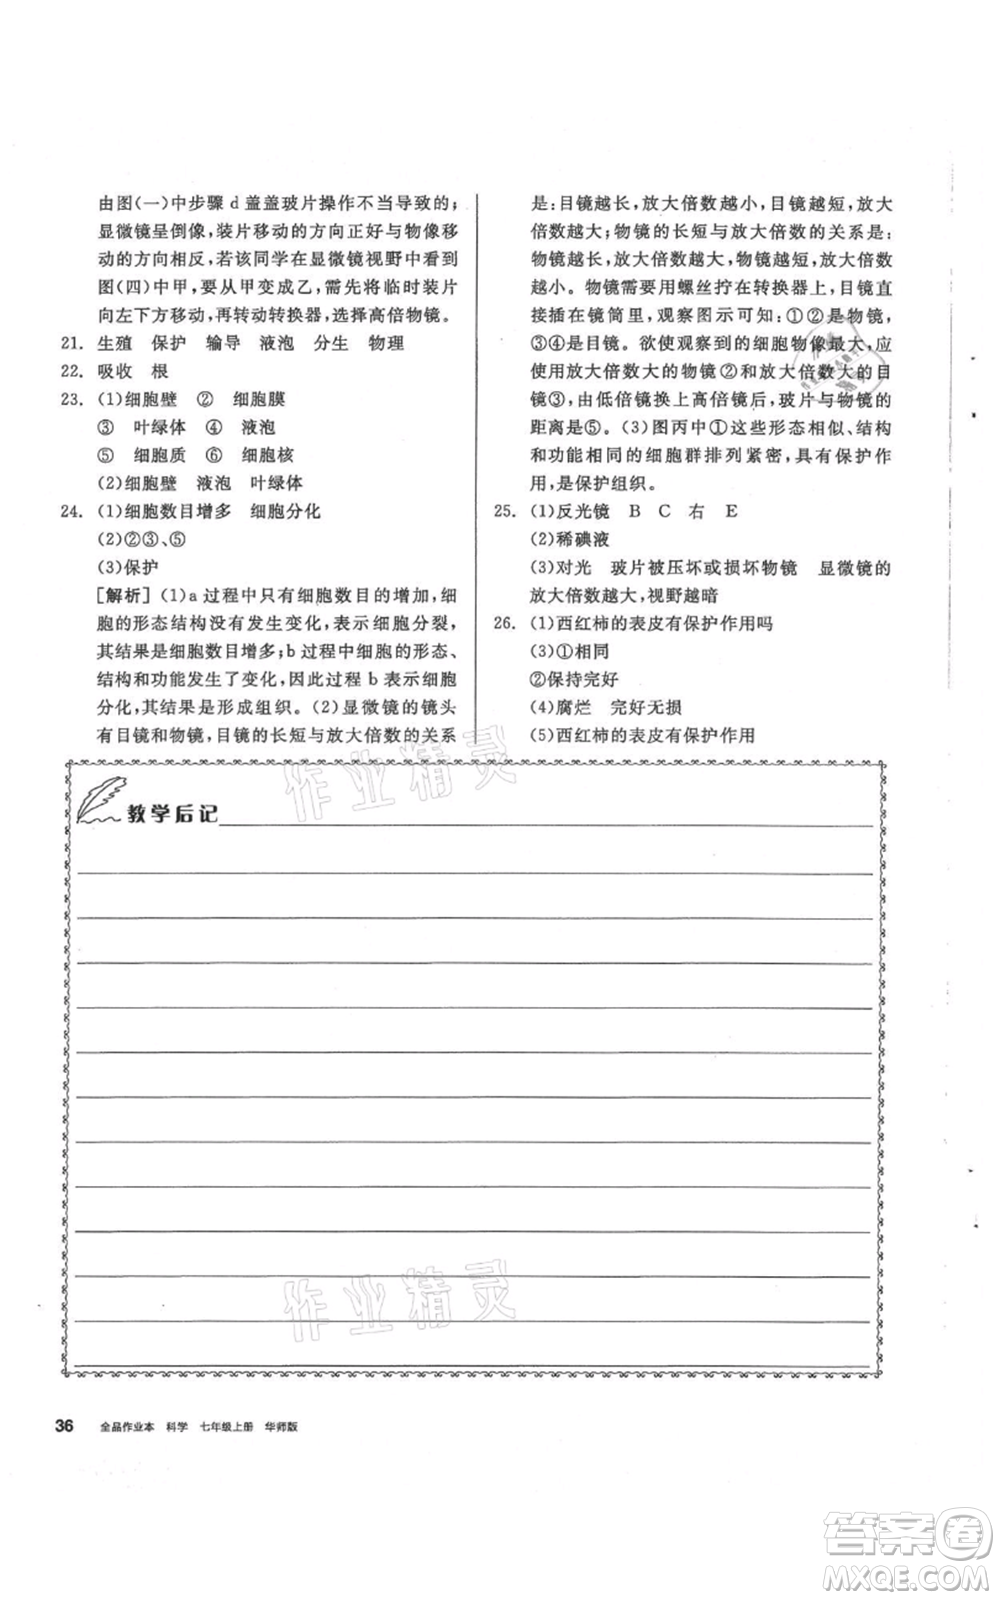 由图(一)中步骤 d 盖盖玻片操作不当导致的;
显微镜呈倒像,装片移动的方向正好与物像移
动的方向相反,若该同学在显微镜视野中看到
图(四)中甲,从甲变成乙,需先将临时装片
向左下方移动,再转动转换器,选择高倍物镜。
21. 生殖 保护 输导 液泡 分生 物理
22. 吸收 根
23. (1)细胞壁 ② 细胞膜
③ 叶绿体 ④ 液泡
⑤ 细胞质 ⑥ 细胞核
(2)细胞壁 液泡 叶绿体
24. (1)细胞数目增多 细胞分化
(2)②③、⑤
(3)保护
[解析] (1)a 过程中只有细胞数目的增加,细
胞的形态结构没有发生变化,表示细胞分裂,
其结果是细胞数目增多;b 过程中细胞的形态、
结构和功能发生了变化,因此过程 b 表示细胞
分化,其结果是形成组织。(2)显微镜的镜头
有目镜和物镜,目镜的长短与放大倍数的关系
是:目镜越长,放大倍数越小,目镜越短,放大
倍数越大;物镜的长短与放大倍数的关系是:
物镜越长,放大倍数越大,物镜越短,放大倍数
越小。物镜需要用螺丝拧在转换器上,目镜直
接插在镜筒里,观察图示可知:①②是物镜,
③④是目镜。欲使观察到的细胞物像最大,应
使用放大倍数大的物镜②和放大倍数大的目
镜③,由低倍镜换上高倍镜时,玻片与物镜的
距离是⑤。(3)图丙中①这些形态相似、结构
和功能相同的细胞群排列紧密,具有保护作
用,是保护组织。
25. (1)反光镜 B C 右 E
(2)稀碘液
(3)对光 玻片被压坏或损坏物镜 显微镜的
放大倍数越大,视野越暗
26. (1)西红柿的表皮有保护作用吗
(3)①相同
②保持完好
(4)腐烂 完好无损
(5)西红柿的表皮有保护作用
作业精灵
教学后记
作业精灵
36 全品作业本 科学 七年级上册 华师版
答案卷
MXQE.COM